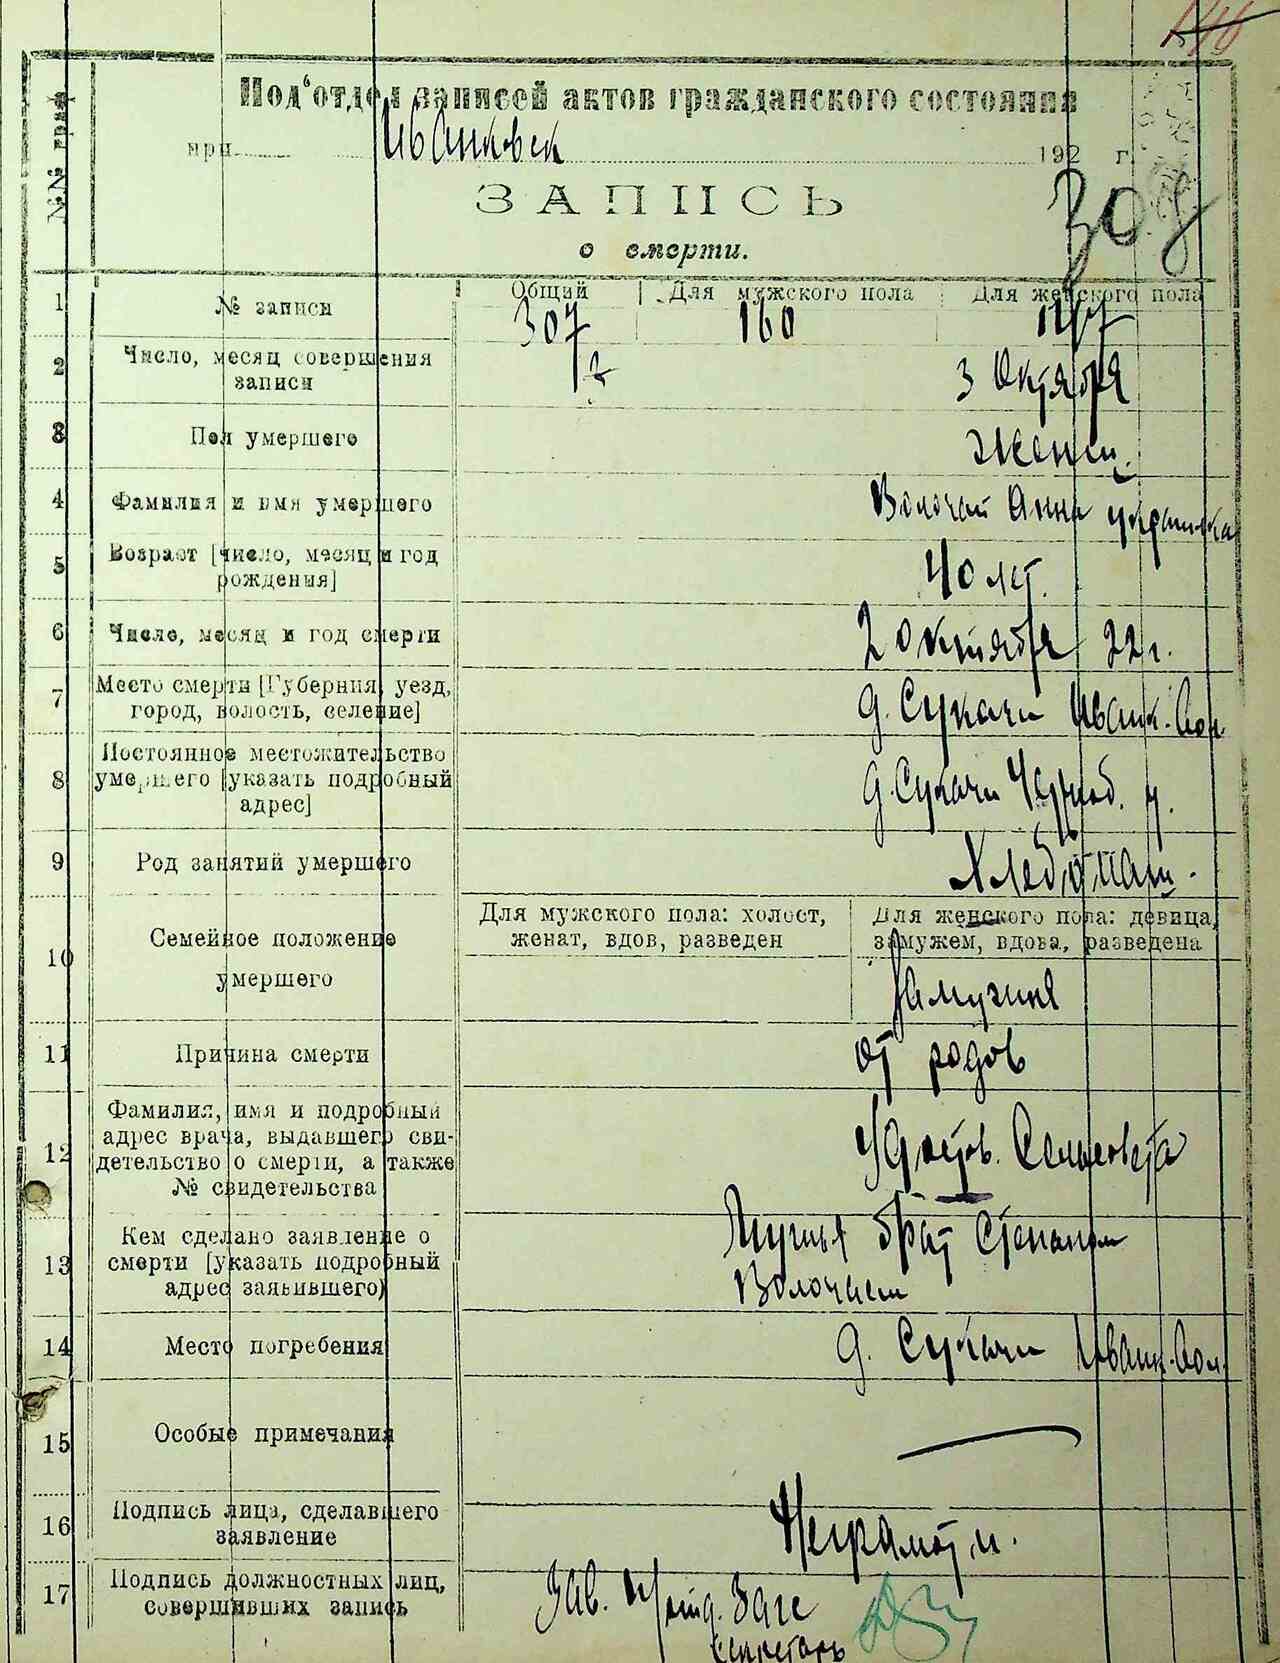 146
№№ граф
Под'отдел записей актов гражданского состояния
при Иванковск 192 г.
ЗАПИСЬ
о смерти.
308
1 № записи Общий Для мужского пола Для женского пола
307 160 147
2 Число, месяц совершения
записи
3 Октября
3 Пол умершего Женщ.
4 Фамилия и имя умершего Волочай Анна украинка
5 Возраст [число, месяц и год
рождения]
40 лет.
6 Число, месяц и год смерти 2 Октября 22 г.
7 Место смерти [Губерния, уезд,
город, волость, селение]
д. Сукачи Иванк. вол.
8 Постоянное местожительство
умершего [указать подробный
адрес]
д. Сукачи Черноб. у.
9 Род занятий умершего Хлебопаш.
10 Семейное положение
умершего
Для мужского пола: холост,
женат, вдов, разведен
Для женского пола: девица,
замужем, вдова, разведена
Замужняя
11 Причина смерти от родов
12 Фамилия, имя и подробный
адрес врача, выдавшего сви-
детельство о смерти, а также
№ свидетельства
Удостов. Сельсовета
13 Кем сделано заявление о
смерти [указать подробный
адрес заявившего)
брат Степаном
Волочаем
14 Место погребения д. Сукачи Иванк. вол.
15 Особые примечания
16 Подпись лица, сделавшего
заявление
Неграмотн.
17 Подпись должностных лиц,
совершивших запись
Зав. Загс
секретарь